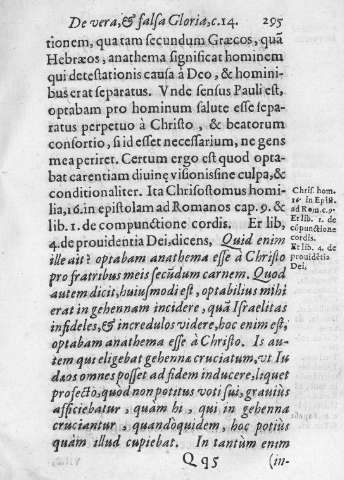 De vera, & falsa Gloria, c. 14. 295
tionem, qua tam secundum Græcos, quā
Hebræos, anathema significat hominem
qui detestationis causâ à Deo, & homini-
bus erat separatus. Vnde sensus Pauli est,
optabam pro hominum salute esse sepa-
ratus perpetuò à Christo, & beatorum
consortio, si id esset necessarium, ne gens
mea periret. Certum ergo est quod opta-
bat carentiam diuinę visionis sine culpa, &
conditionaliter. Ita Chrisostomus homi-
lia, 16. in epistolam ad Romanos cap. 9. &
lib. 1. de compunctione cordis. Er lib,
4. de prouidentia Dei, dicens, Quid enim
ille ait? optabam anathema esse à Christo
pro fratribus meis secūdum carnem. Quod
autem dicit, huiusmodi est, optabilius mihi
erat in gehennam incidere, quā Israelitas
infideles, & incredulos videre, hoc enim est,
optabam anathema esse à Christo. Is au-
tem qui eligebat gehennæ cruciatum, vt Iu
dæos omnes posset ad fidem inducere, liquet
profectò, quòd non potitus voti sui, grauiùs
afficiebatur, quàm hi, qui in gehenna
cruciantur, quandoquidem, hoc potiùs
quàm illud cupiebat. In tantùm enim
Q q 5 (in-
Chris. hom.
16. in Epist.
ad Rom. c. 9.
Er lib. 1. de
cōpunctione
cordis.
Er lib. 4. de
prouidētia
Dei.